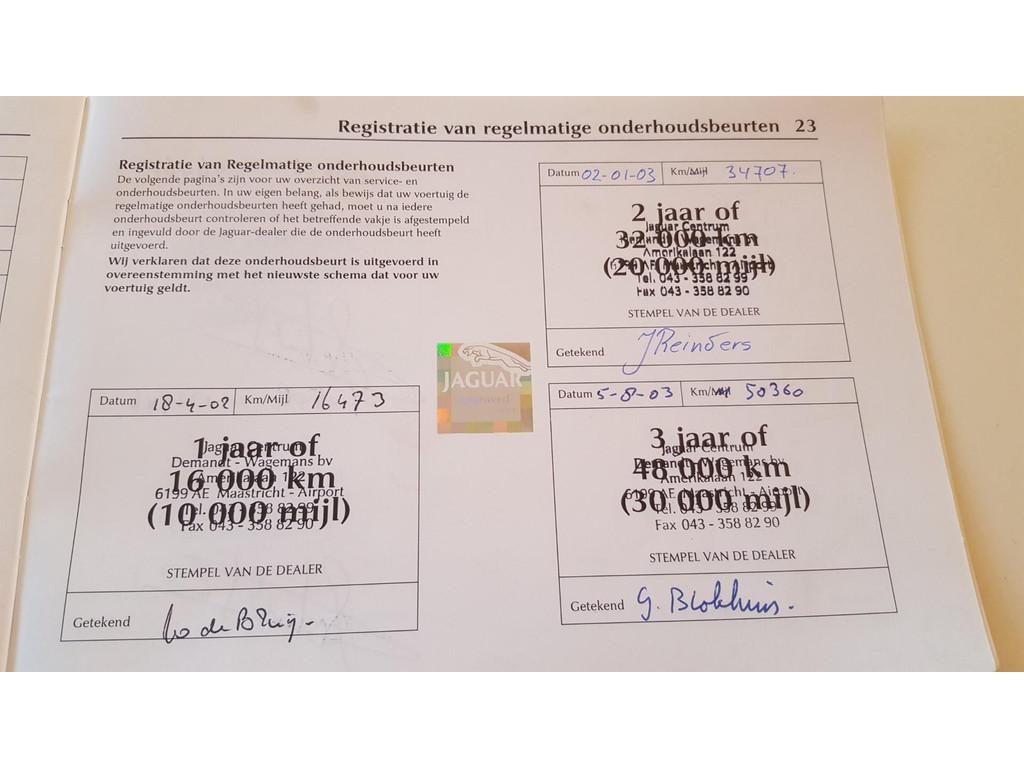 Registratie van regelmatige onderhoudsbeurten 23
Registratie van Regelmatige onderhoudsbeurten
De volgende pagina's zijn voor uw overzicht van service- en
onderhoudsbeurten. In uw eigen belang, als bewijs dat uw voertuig de
regelmatige onderhoudsbeurten heeft gehad, moet u na iedere
onderhoudsbeurt controleren of het betreffende vakje is afgestempeld
en ingevuld door de Jaguar-dealer die de onderhoudsbeurt heeft
uitgevoerd.
Wij verklaren dat deze onderhoudsbeurt is uitgevoerd in
overeenstemming met het nieuwste schema dat voor uw
voertuig geldt.
Datum 18-4-02 Km/Mijl 16473
1 jaar of
Jaguar Centrum
Demandt - Wagemans bv
16 000 km
Amerikalaan 122
6199 AE Maastricht - Airport
(10 000 mijl)
Tel. 043 - 358 82 99
Fax 043 - 358 82 90
STEMPEL VAN DE DEALER
Getekend
JAGUAR
Datum 02-01-03 Km/Mijl 34707.
2 jaar of
Jaguar Centrum
32 000 km
Demandt - Wagemans bv
Amerikalaan 122
(20 000 mijl)
6199 AE Maastricht - Airport
Tel. 043 - 358 82 99
Fax 043 - 358 82 90
STEMPEL VAN DE DEALER
Getekend JReinders
Datum 5-8-03 Km/Mijl 50360
3 jaar of
Jaguar Centrum
Demandt - Wagemans bv
48 000 km
Amerikalaan 122
6199 AE Maastricht - Airport
(30 000 mijl)
Tel. 043 - 358 82 99
Fax 043 - 358 82 90
STEMPEL VAN DE DEALER
Getekend G. Blokhuis.